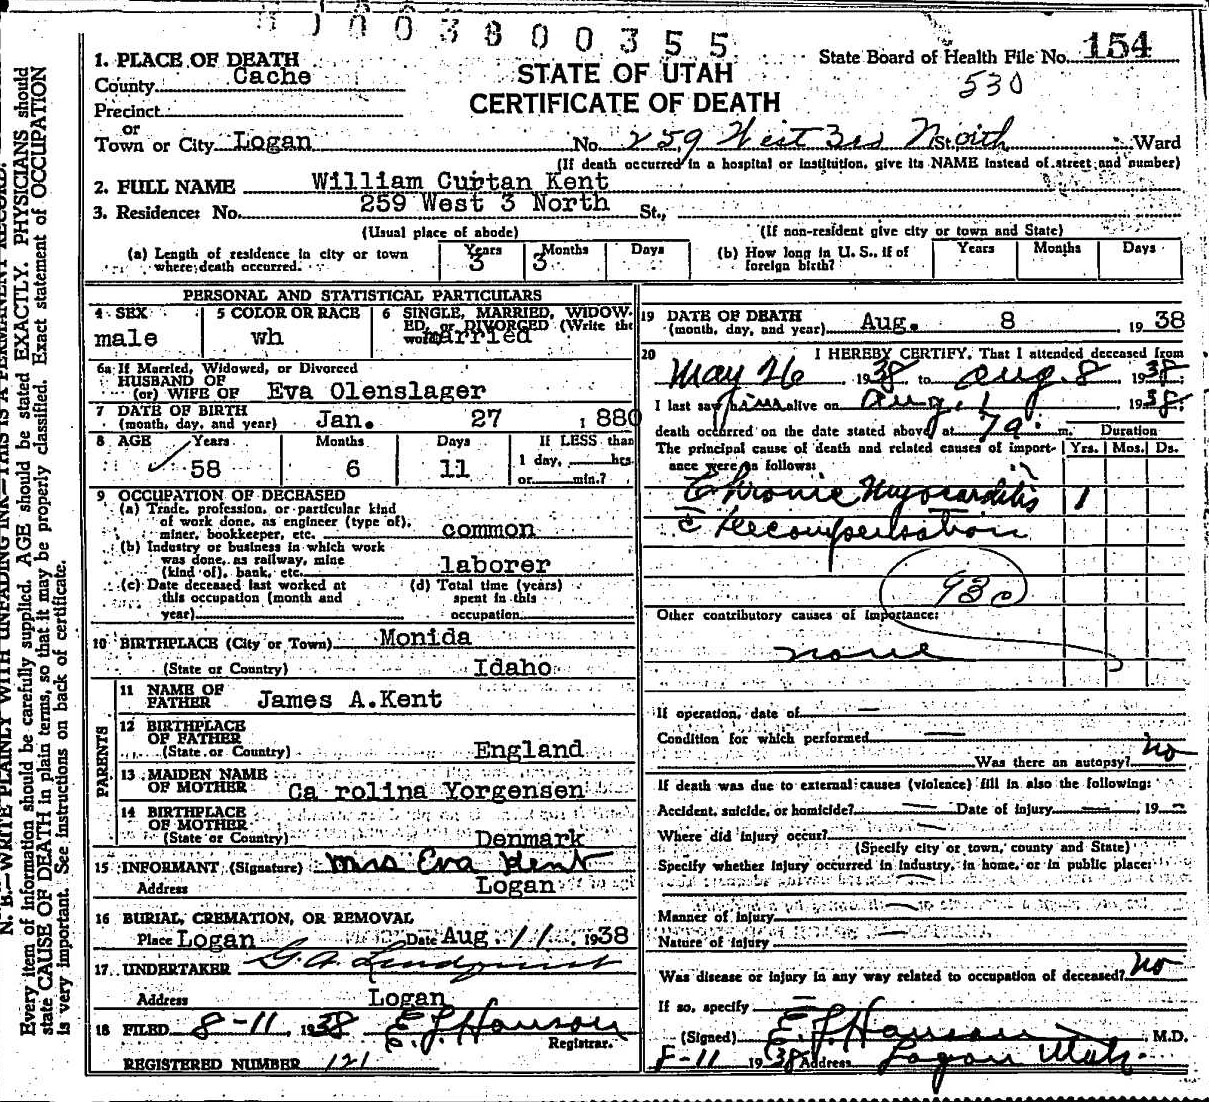 0 0 3 8 0 0 3 5 5
State Board of Health File No. 154
530
STATE OF UTAH
CERTIFICATE OF DEATH
1. PLACE OF DEATH
County Cache
Precinct
or
Town or City Logan No. 259 West 3rd North St. Ward
(If death occurred in a hospital or institution, give its NAME instead of street and number)
2. FULL NAME William Curtan Kent
3. Residence: No. 259 West 3 North St.,
(Usual place of abode) (If non-resident give city or town and State)
(a) Length of residence in city or town where death occurred. Years 3 Months 3 Days
(b) How long in U. S., if of foreign birth? Years Months Days
PERSONAL AND STATISTICAL PARTICULARS
4 SEX male
5 COLOR OR RACE wh
6 SINGLE, MARRIED, WIDOWED, or DIVORCED (Write the word) married
6a If Married, Widowed, or Divorced
HUSBAND OF
(or) WIFE OF Eva Olenslager
7 DATE OF BIRTH
(month, day, and year) Jan. 27 , 1880
8 AGE Years 58 Months 6 Days 11 If LESS than
1 day, hrs.
or min.?
9 OCCUPATION OF DECEASED
(a) Trade, profession, or particular kind
of work done, as engineer (type of),
miner, bookkeeper, etc. common
(b) Industry or business in which work
was done, as railway, mine
(kind of), bank, etc. laborer
(c) Date deceased last worked at
this occupation (month and
year)
(d) Total time (years)
spent in this
occupation
10 BIRTHPLACE (City or Town) Monida
(State or Country) Idaho
PARENTS
11 NAME OF
FATHER James A.Kent
12 BIRTHPLACE
OF FATHER
(State or Country) England
13 MAIDEN NAME
OF MOTHER Ca rolina Yorgensen
14 BIRTHPLACE
OF MOTHER
(State or Country) Denmark
15 INFORMANT (Signature) Mrs Eva Kent
Address Logan
16 BURIAL, CREMATION, OR REMOVAL
Place Logan Date Aug. 11, 1938
17 UNDERTAKER G. A. Lindquist
Address Logan
18 FILED 8-11, 1938 E. J. Hanson
Registrar.
REGISTERED NUMBER 121
19 DATE OF DEATH
(month, day, and year) Aug. 8 1938
20 I HEREBY CERTIFY, That I attended deceased from
May 26 1938, to Aug. 8 1938;
I last saw him alive on Aug. 1938;
death occurred on the date stated above at 7 a. m. Duration
The principal cause of death and related causes of importance were as follows: Yrs. Mos. Ds.
Chronic Myocarditis 1
c Decompensation
93c
Other contributory causes of importance:
none
If operation, date of —
Condition for which performed —
Was there an autopsy? No
If death was due to external causes (violence) fill in also the following:
Accident, suicide, or homicide? — Date of injury — 19 —
Where did injury occur? —
(Specify city or town, county and State)
Specify whether injury occurred in industry, in home, or in public place:
—
Manner of injury —
Nature of injury —
Was disease or injury in any way related to occupation of deceased? No
If so, specify —
(Signed) E. J. Hanson, M.D.
8-11 1938 Address Logan Utah.
N. B.—WRITE PLAINLY WITH UNFADING INK—THIS IS A PERMANENT RECORD.
Every item of information should be carefully supplied. AGE should be stated EXACTLY. PHYSICIANS should
state CAUSE OF DEATH in plain terms, so that it may be properly classified. Exact statement of OCCUPATION
is very important. See instructions on back of certificate.